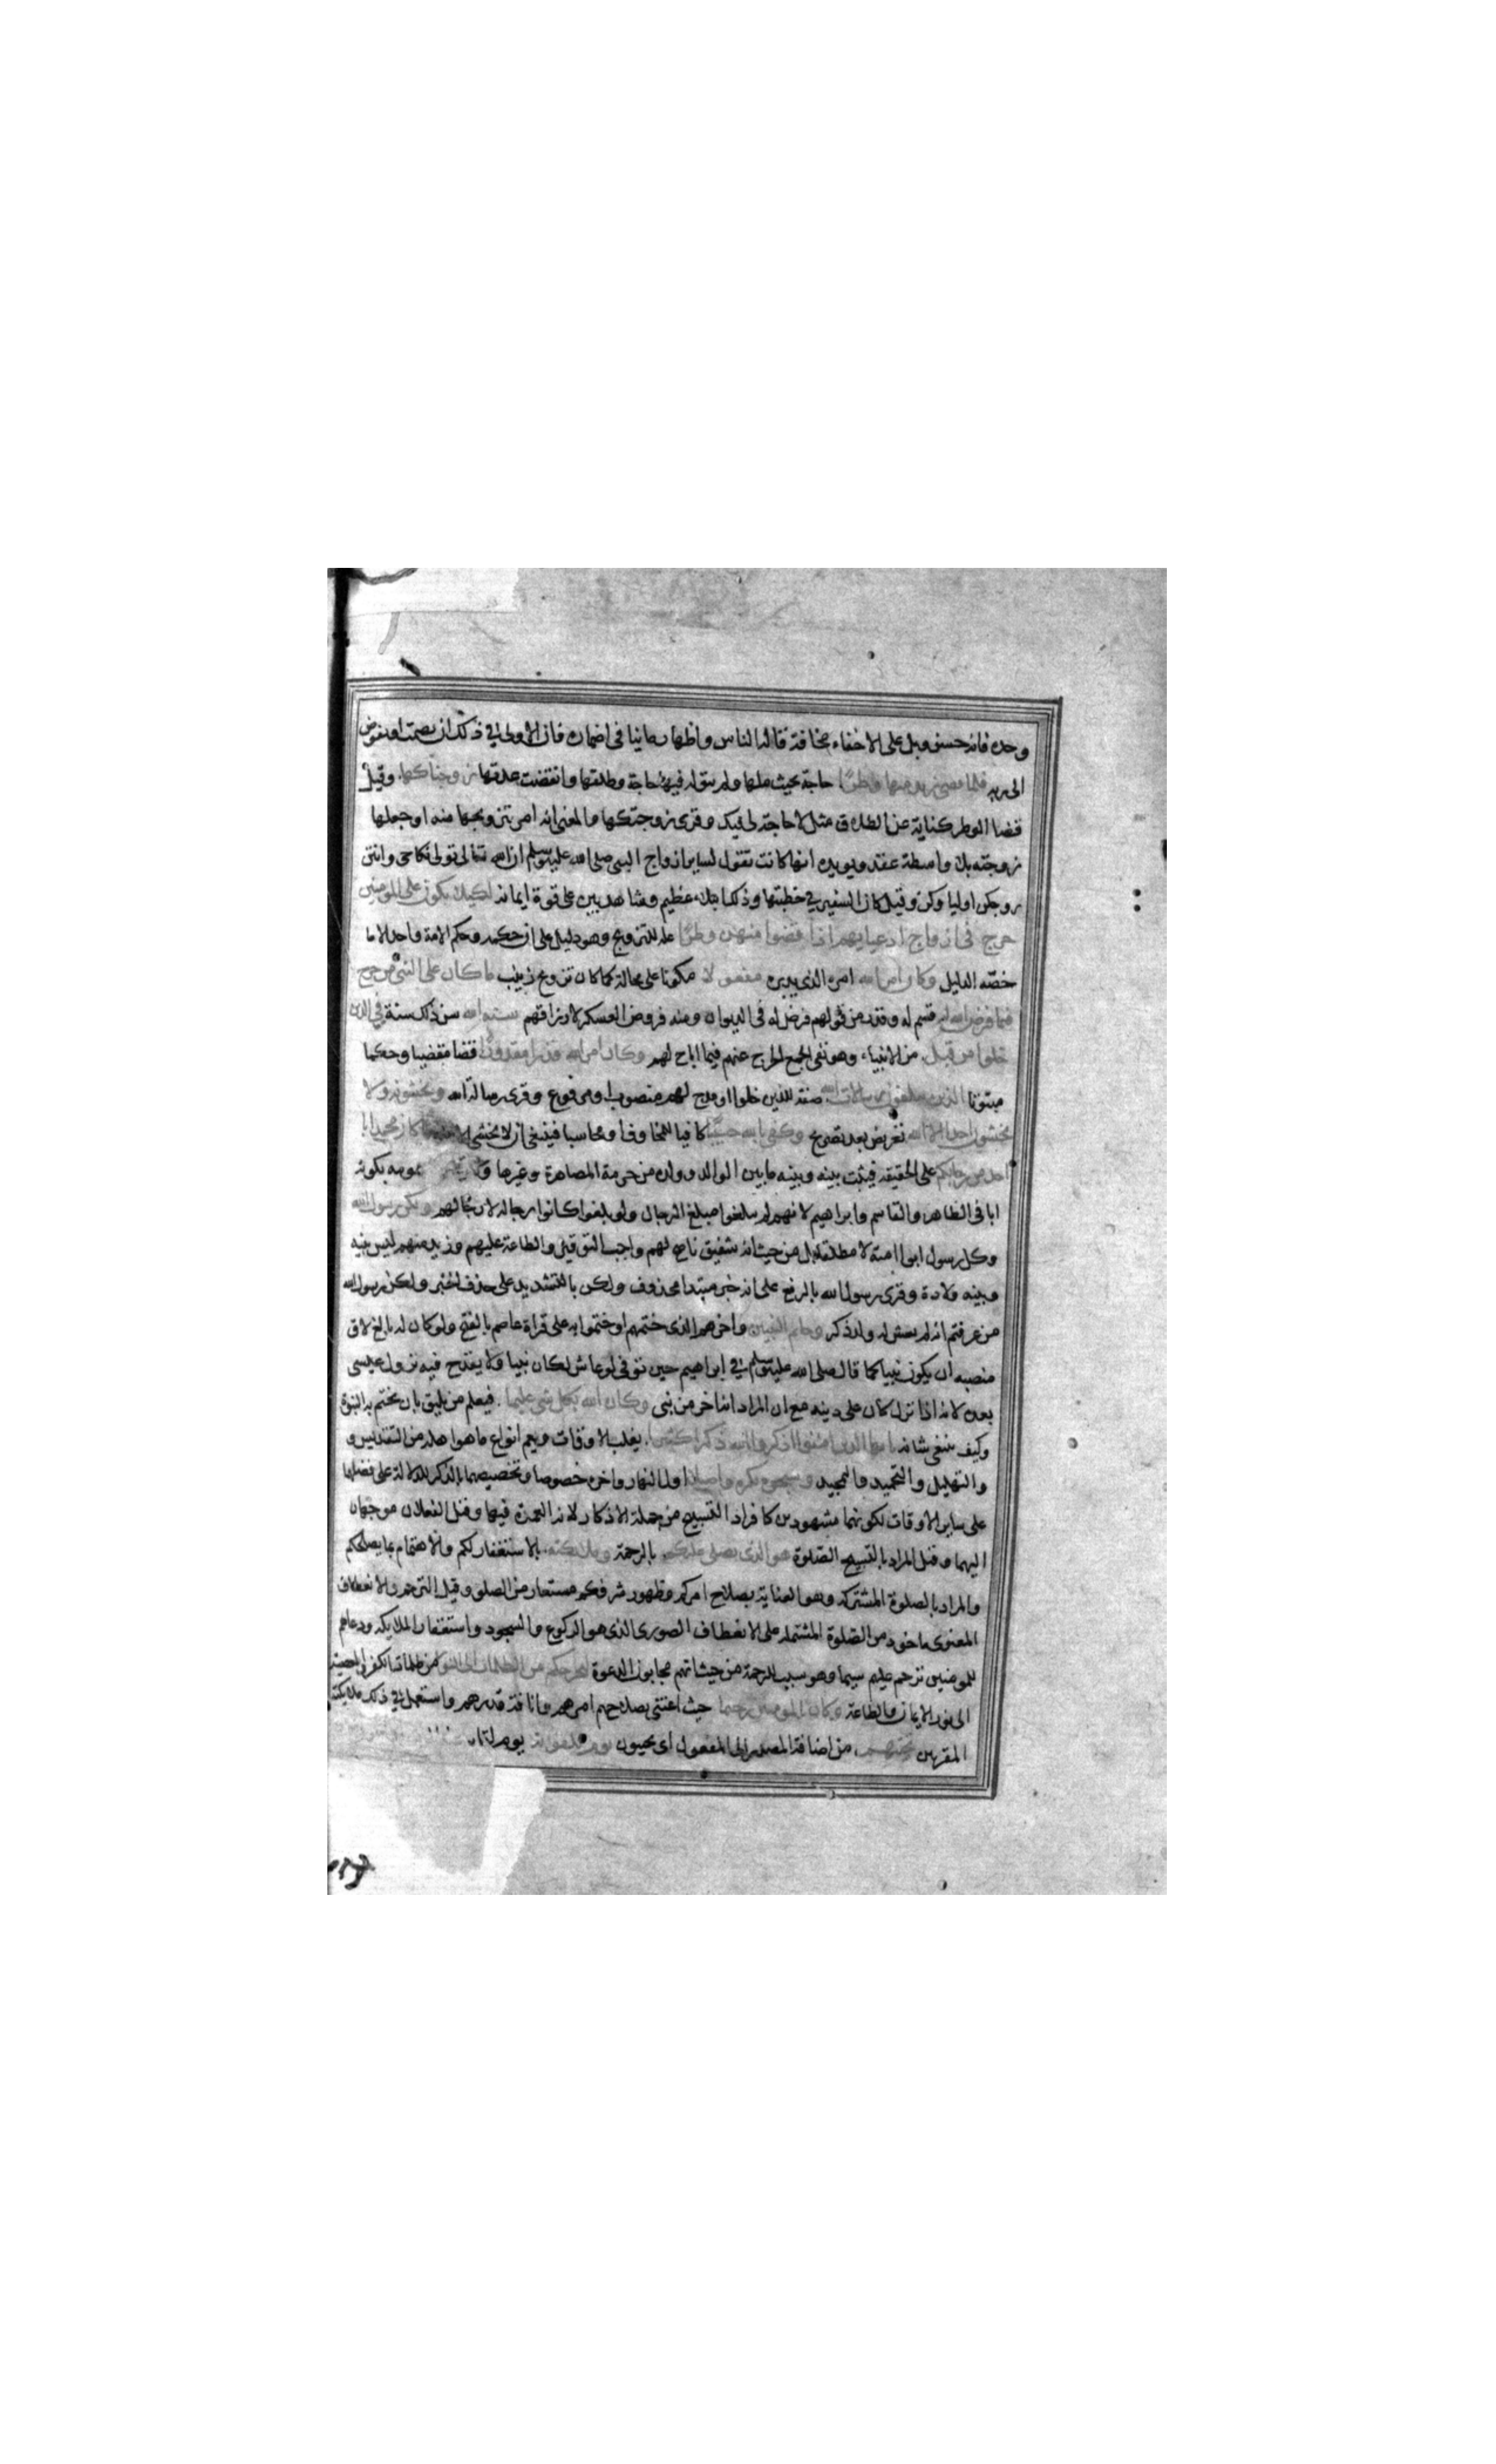 وحده فانه حسن وبل على الاخفاء مخافة قالة الناس واظهار ماينا فى اضماره فان الاولى في ذلك ان يصمت او يفوض
الى ربه فلما قضى زيد منها وطرًا حاجة بحيث ملها ولم يبق له فيها حاجة وطلقها وانقضت عدتها زوجناكها وقيل
قضا الوطر كناية عن الطلاق مثل لا حاجة لى فيك وقرى زوجتكها والمعنى انه امر بتزويجها منه او جعلها
زوجته بلا واسطة عقد ويويده انها كانت تقول لساير ازواج النبى صلى الله عليه وسلم ان الله تعالى تولى نكاحى وانتن
زوجكن اولياوكن وقيل كان السفير في خطبتها وذلك ابتلاء عظيم وشاهد بين على قوة ايمانه لكيلا يكون على المومنين
حرج فى ازواج ادعيايهم اذا قضوا منهن وطرًا علة للتزويج وهو دليل على ان حكمه وحكم الامة واحد الا ما
خصّه الدليل وكان امر الله امره الذى يريده مفعولا مكونا لا محالة كما كان تزويج زينب ما كان على النبى من حرج
فيما فرض الله له قسم له وقدر من قولهم فرض له فى الديوان ومنه فروض العسكر لارزاقهم سنة الله سن ذلك سنة في الذين
خلوا من قبل من الانبياء وهو نفى الحرج عنهم فيما اباح لهم وكان امر الله قدرا مقدورًا قضا مقضيا وحكما
مبتوتا الذين يبلغون رسالات الله صفة للذين خلوا او مدح لهم منصوب او مرفوع وقرى رسالة الله ويخشونه ولا
يخشون احدا الا الله تعريض بعد تصريح وكفى بالله حسيبًا كافيا للمخاوف او محاسبا فينبغى ان لا يخشى الا منه ما كان محمد ابا
احد من رجالكم على الحقيقة فيثبت بينه وبينه ما بين الوالد وولده من حرمة المصاهرة وغيرها ولا عمومه بكونه
ابا فى الطاهر والقاسم وابراهيم لانهم لم يبلغوا مبلغ الرجال ولو بلغوا كانوا رجاله لا رجالهم ولكن رسول الله
وكل رسول ابو امته لا مطلقا بل من حيث انه شفيق ناصح لهم واجب التوقير والطاعة عليهم وزيد منهم ليس بينه
وبينه ولادة وقرى رسول الله بالرفع على انه خبر مبتدا محذوف ولكن بالتشديد على حذف الخبر ولكن رسول الله
من عرفتم انه لم يعش له ولد ذكر وخاتم النبيين واخرهم الذى ختمهم او ختموا به على قراة عاصم بالفتح ولو كان له بالغ لاق
منصبه ان يكون نبيا كما قال صلى الله عليه وسلم في ابراهيم حين توفى لو عاش لكان نبيا ولا يقدح فيه نزول عيسى
بعده لانه اذا نزل كان على دينه مع ان المراد انه اخر من نبى وكان الله بكل شى عليما فيعلم من يليق بان يختم به النبوة
وكيف ينبغى شانه يا ايها الذين امنوا اذكروا الله ذكرا كثيرا يغلب الاوقات ويعم انواع ما هو اهله من التقديس و
والتهليل والتحميد والتمجيد وسبحوه بكرة واصيلا اول النهار واخره خصوصا وتخصيصهما بالذكر للدلالة على فضلهما
على ساير الاوقات لكونهما مشهودين كافراد التسبيح من جملة الاذكار لانه العمدة فيها وقيل الفعلان موجهان
اليهما وقيل المراد بالتسبيح الصّلوة هو الذى يصلى عليكم بالرحمة وملائكته بالاستغفار لكم والاهتمام بما يصلحكم
والمراد بالصلوة المشترك وهو العناية بصلاح امركم وظهور شرفكم مستعار من الصلو وقيل الترحم والانعطاف
المعنوى ماخوذ من الصّلوة المشتملة على الانعطاف الصورى الذى هو الركوع والسجود واستغفار الملايكه ودعاهم
للمومنين ترحم عليهم سيما وهو سبب للرحمة من حيث انهم مجابوا الدعوة ليخرجكم من الظلمات الى النور من ظلمات الكفر والمعصية
الى نور الايمان والطاعة وكان بالمومنين رحيما حيث اعتنى بصلاح امرهم وانافة قدرهم واستعمل في ذلك ملايكته
المقربين تحيتهم من اضافة المصدر الى المفعول اى يحيون يوم يلقونه يوم لقاه